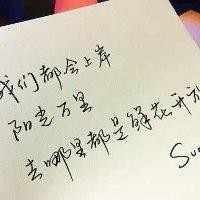 我们都会上岸
阳光万里
去哪里都是鲜花开放
Sun